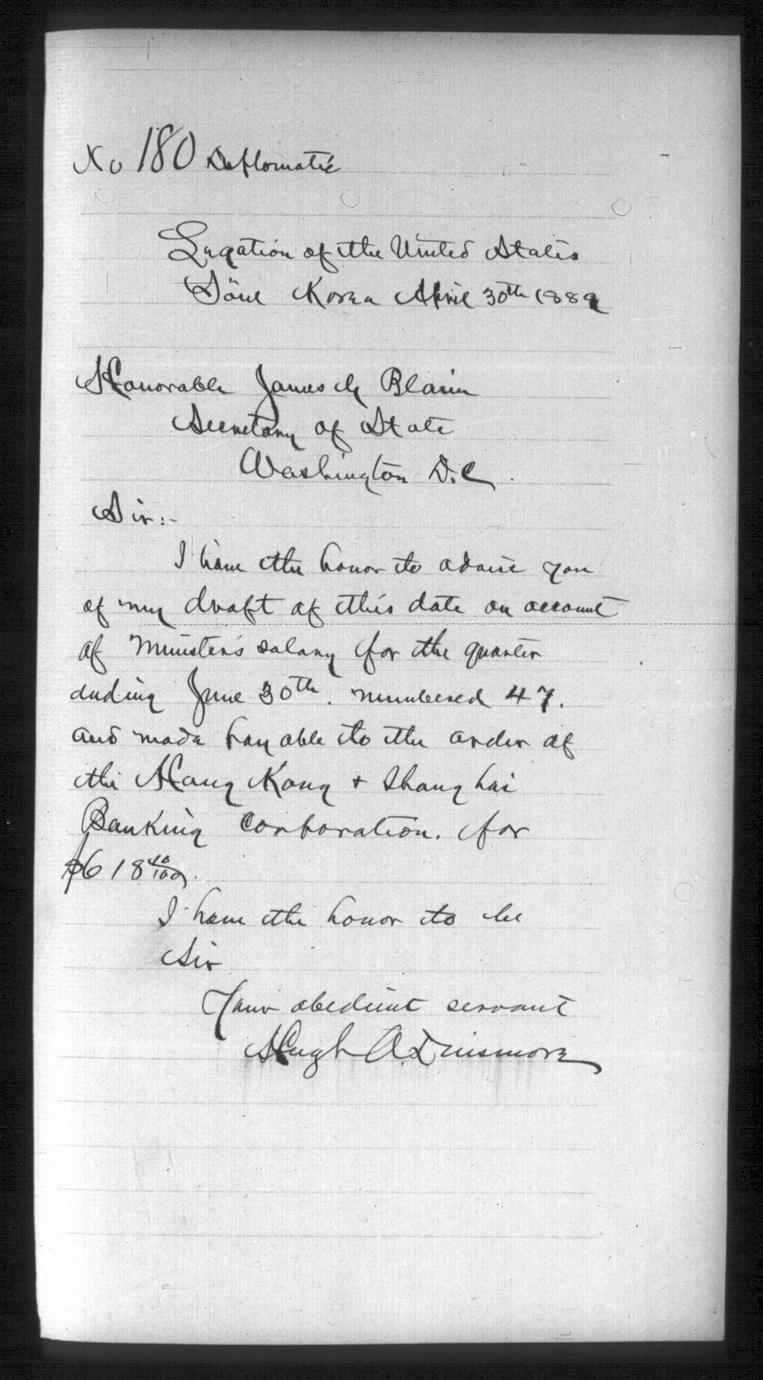 No 180 Diplomatic
Legation of the United States
Söul Korea April 30th 1889
Honorable James G Blaine
Secretary of State
Washington D.C.
Sir:-
I have the honor to advise you
of my draft of this date on account
of Minister's salary for the quarter
ending June 30th. numbered 47.
and made payable to the order of
the Hong Kong & Shanghai
Banking Corporation. for
$618 40/100.
I have the honor to be
Sir
Your obedient servant
Hugh A. Dinsmore